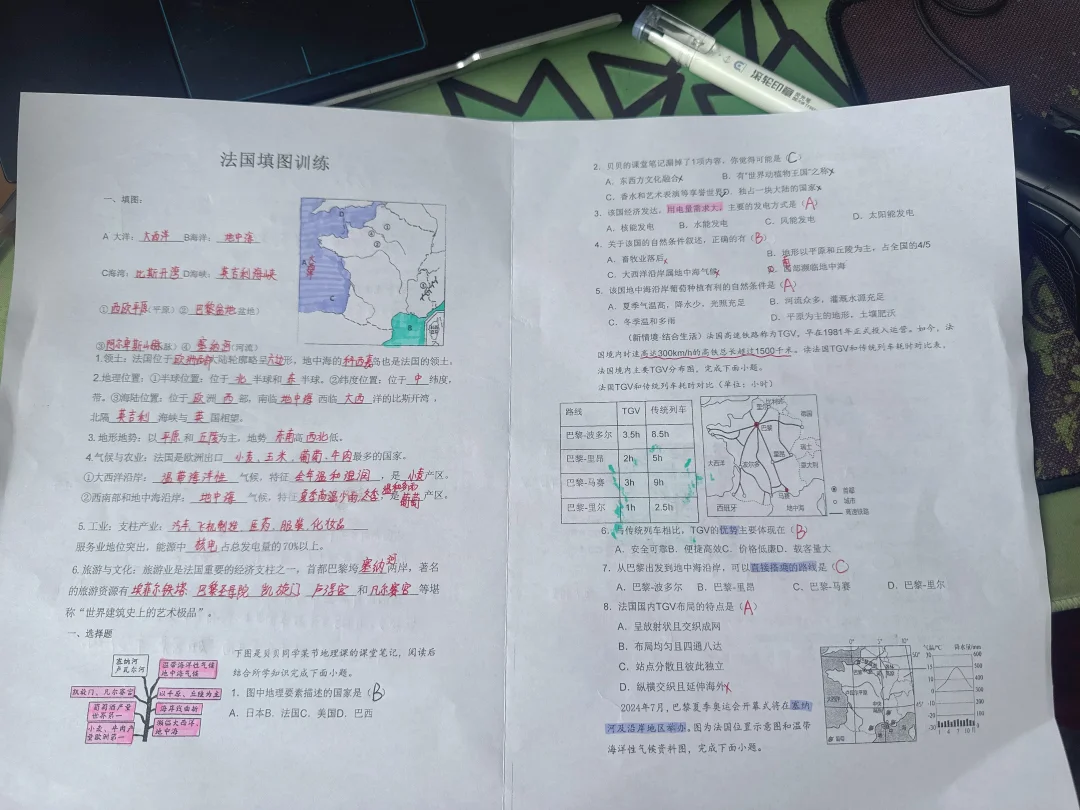 法国填图训练
一、填图：
A 大洋：大西洋 B海洋：地中海
C海湾：比斯开湾 D海峡：英吉利海峡
①西欧平原(平原) ②巴黎盆地(盆地)
③阿尔卑斯山脉(脉) ④塞纳河(河流)
1.领土：法国位于欧洲西部大陆轮廓呈六边形，地中海的科西嘉岛也是法国的领土。
2.地理位置：①半球位置：位于北半球和东半球。②纬度位置：位于中纬度，
带。③海陆位置：位于欧洲西部，南临地中海西临大西洋的比斯开湾，
北隔英吉利海峡与英国相望。
3.地形地势：以平原和丘陵为主，地势东南高西北低。
4.气候与农业：法国是欧洲出口小麦、玉米、葡萄、牛肉最多的国家。
①大西洋沿岸：温带海洋性气候，特征全年温和湿润，是小麦产区。
②西南部和地中海沿岸：地中海气候，特征夏季高温少雨，冬季温和多雨，是葡萄产区。
5.工业：支柱产业：汽车、飞机制造、医药、服装、化妆品
服务业地位突出，能源中核电占总发电量的70%以上。
6.旅游与文化：旅游业是法国重要的经济支柱之一，首都巴黎将塞纳河两岸，著名
的旅游资源有埃菲尔铁塔 巴黎圣母院 凯旋门 卢浮宫和凡尔赛宫等堪
称“世界建筑史上的艺术极品”。
一、选择题
下图是贝贝同学某节地理课的课堂笔记，阅读后
结合所学知识完成下面小题。
塞纳河
卢瓦尔河
温带海洋性气候
地中海气候
凯旋门、凡尔赛宫
以平原、丘陵为主
葡萄酒产量
世界第一
海岸线曲折
小麦、牛肉产
量欧洲第一
濒临大西洋、
地中海
1. 图中地理要素描述的国家是（B）
A．日本B．法国C．美国D．巴西
2．贝贝的课堂笔记漏掉了1项内容，你觉得可能是（C）
A．东西方文化融合x B．有“世界动植物王国”之称x
C．香水和艺术表演等享誉世界D．独占一块大陆的国家x
3．该国经济发达，用电量需求大，主要的发电方式是（A）
A．核能发电 B．水能发电 C．风能发电 D．太阳能发电
4．关于该国的自然条件叙述，正确的有（B）
A．畜牧业落后x B．地形以平原和丘陵为主，占全国的4/5
C．大西洋沿岸属地中海气候x D．西部濒临地中海
南
5．该国地中海沿岸葡萄种植有利的自然条件是（A）
A．夏季气温高，降水少，光照充足 B．河流众多，灌溉水源充足
C．冬季温和多雨 D．平原为主的地形，土壤肥沃
（新情境 结合生活）法国高速铁路称为TGV，早在1981年正式投入运营。如今，法
国境内时速高达300km/h的高铁总长超过1500千米。读法国TGV和传统列车耗时对比表、
法国境内主要TGV分布图，完成下面小题。
法国TGV和传统列车耗时对比（单位：小时）
路线 TGV 传统列车
巴黎-波多尔 3.5h 8.5h
巴黎-里昂 2h 5h
巴黎-马赛 3h 9h
巴黎-里尔 1h 2.5h
里尔
比利时
德国
巴黎
瑞士
大西洋
波尔多
里昂
意大利
马赛
西班牙
地中海
首都
城市
高速铁路
6．与传统列车相比，TGV的优势主要体现在（B）
A．安全可靠B．便捷高效C．价格低廉D．载客量大
7．从巴黎出发到地中海沿岸，可以直接搭乘的路线是（C）
A．巴黎-波多尔 B．巴黎-里昂 C．巴黎-马赛 D．巴黎-里尔
8．法国国内TGV布局的特点是（A）
A．呈放射状且交织成网
B．布局均匀且四通八达
C．站点分散且彼此独立
D．纵横交织且延伸海外x
2024年7月，巴黎夏季奥运会开幕式将在塞纳
河及沿岸地区举办。图为法国位置示意图和温带
海洋性气候资料图，完成下面小题。
气温/℃ 降水量/mm
1 4 7 10 月